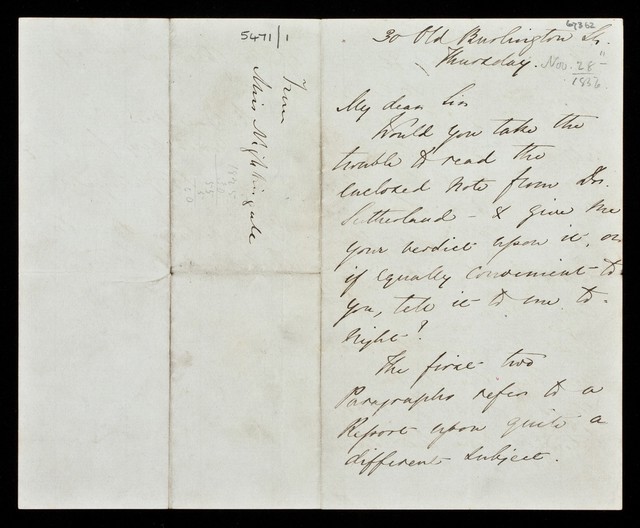 5471/1
From
Miss Nightingale
63862
30 Old Burlington St.
Thursday. Nov. 28
My dear Sir
Would you take the
trouble to read the
enclosed note from Dr.
Sutherland - & give me
your verdict upon it, or
if equally convenient to
you, tell it to me to-
night?
The first two
Paragraphs refer to a
Report upon quite a
different subject.